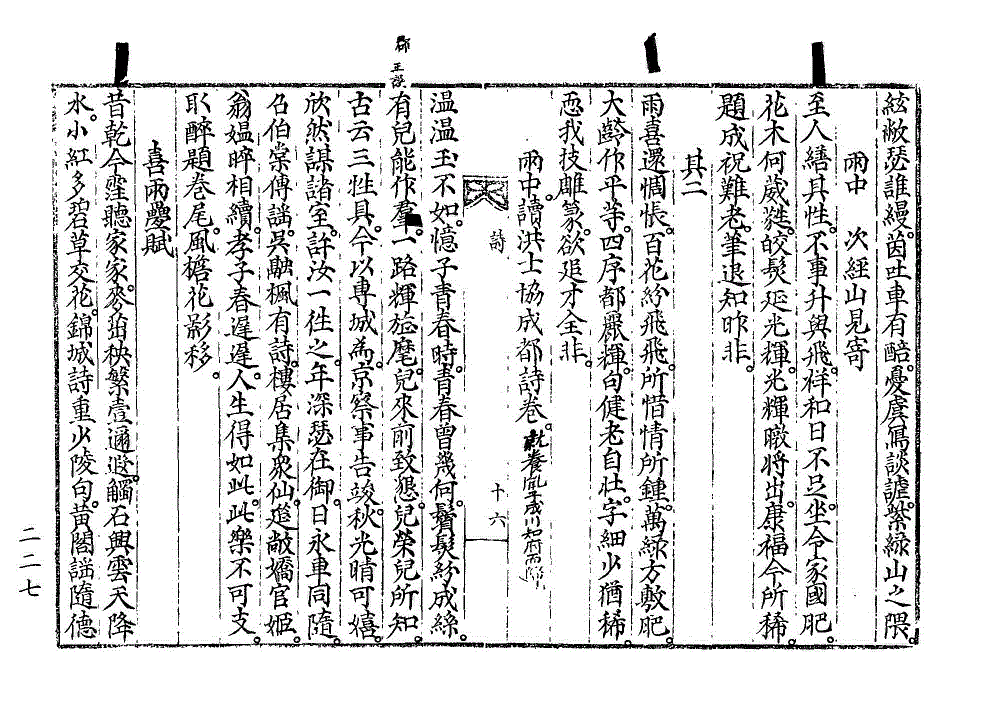 絃敝瑟誰縵茵吐車有酷憂虞寫談謔縈緣山之隈
雨中 次經山見寄
至人繕其性不事升與飛祥和日不足坐令家國肥
花木何葳蕤皎髮延光輝光輝暾將出康福今所稀
題成祝難老筆退知昨非
其二
雨喜還惆悵百花紛飛飛所惜情所鍾萬綠方敷肥
大齡作平等四序都嚴輝句健老自壯字細少猶稀
恧我技雕篆欲退才全非
雨中讀洪士協成都詩卷
詩
十六
温温玉不如憶子青春時青春曾幾何鬢髮紛成絲
有兒能作羣一路輝旌麾兒來前致懇兒榮兒所知
古云三牲具今以專城為京察事告竣秋光晴可嬉
欣然謀諸至許汝一往之年深瑟在御日永車同隨
召伯棠傳謡吳融楓有詩樓居集衆仙筵敞嬌官姬
翁媼晬相續孝子春遲遲人生得如此此樂不可支
取醉題卷尾風檐花影移
喜雨疊賦
昔乾今霪聽家家麥菑秧繁壹遍遮觸石興雲天降
水小紅多碧草交花錦城詩重少陵句黄閣謡隨德
二二七